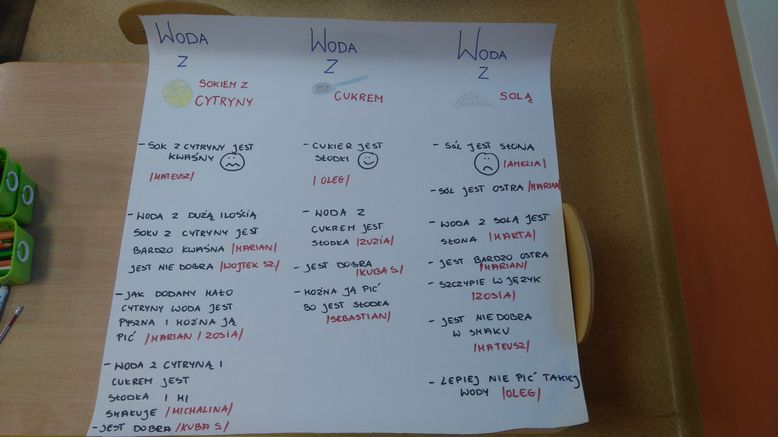 WODA
Z
SOKIEM Z
CYTRYNY
- SOK Z CYTRYNY JEST
KWAŚNY
/MATEUSZ/
- WODA Z DUŻĄ ILOŚCIĄ
SOKU Z CYTRYNY JEST
BARDZO KWAŚNA /MARIAN/
JEST NIE DOBRA /WOJTEK SZ./
- JAK DODAMY MAŁO
CYTRYNY WODA JEST
PYSZNA I MOŻNA JĄ
PIĆ /MARIAN / ZOSIA/
- WODA Z CYTRYNĄ I
CUKREM JEST
SŁODKA I MI
SMAKUJE /MICHALINA/
- JEST DOBRA /KUBA S./
WODA
Z
CUKREM
- CUKIER JEST
SŁODKI
/OLEG/
- WODA Z
CUKREM JEST
SŁODKA /ZUZIA/
- JEST DOBRA
/KUBA S./
- MOŻNA JĄ PIĆ
BO JEST SŁODKA
/SEBASTIAN/
WODA
Z
SOLĄ
- SÓL JEST SŁONA
/AMELIA/
- SÓL JEST OSTRA /MARIAN
- WODA Z SOLĄ JEST
SŁONA /MARTA/
- JEST BARDZO OSTRA
/MARIAN/
- SZCZYPIE W JĘZYK
/ZOSIA/
- JEST NIE DOBRA
W SMAKU
/MATEUSZ/
- LEPIEJ NIE PIĆ TAKIEJ
WODY /OLEG/